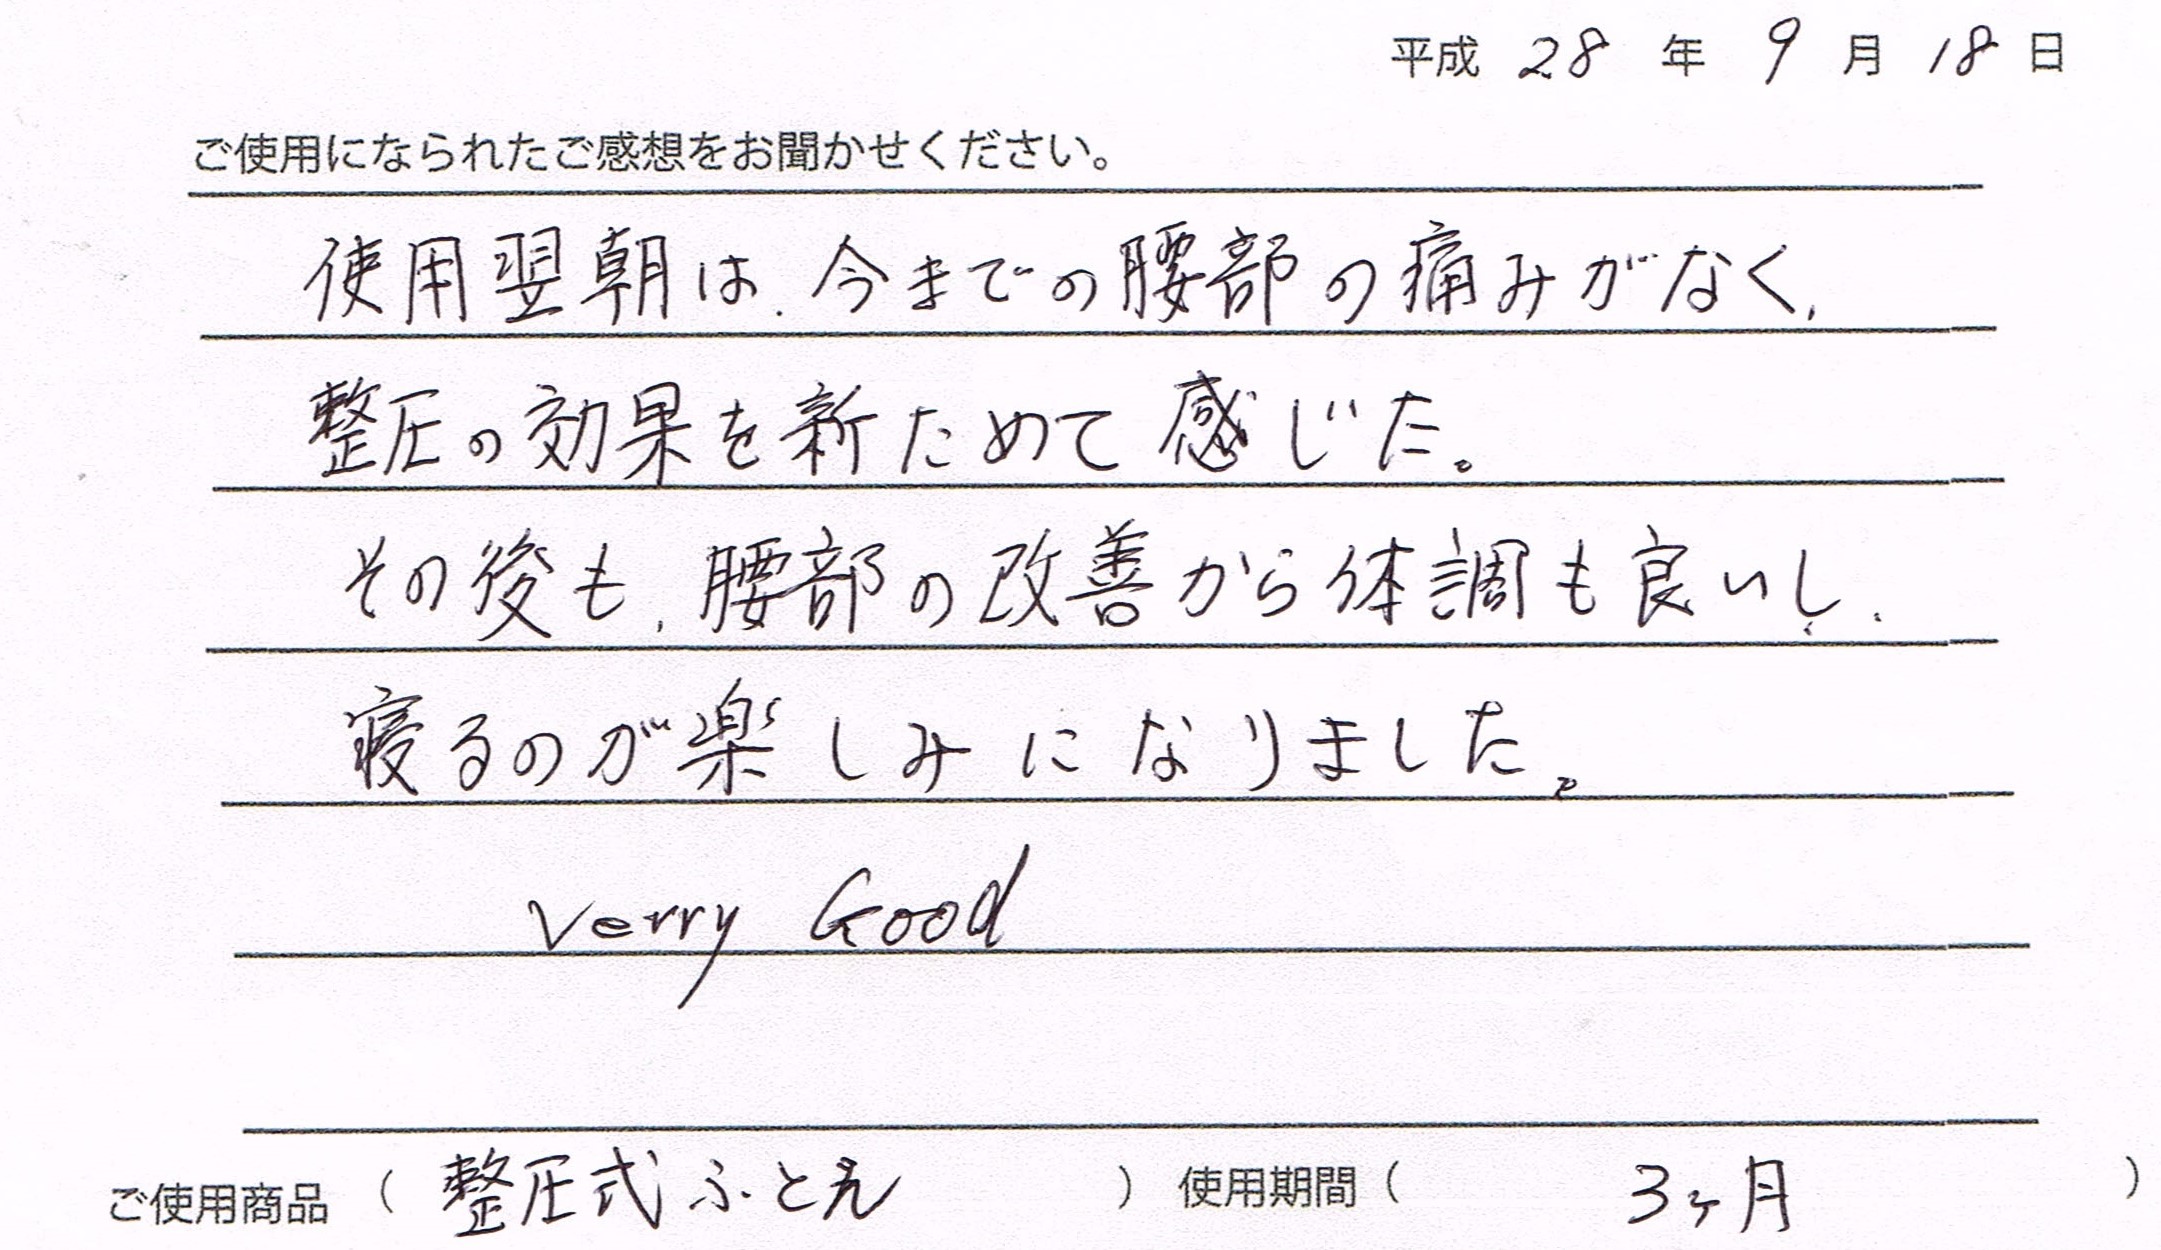 平成 28 年 9 月 18 日
ご使用になられたご感想をお聞かせください。
使用翌朝は、今までの腰部の痛みがなく、
整圧の効果を新ためて感じた。
その後も、腰部の改善から体調も良いし、
寝るのが楽しみになりました。
Verry Good
ご使用商品 ( 整圧式ふとん ) 使用期間 ( 3ヶ月 )